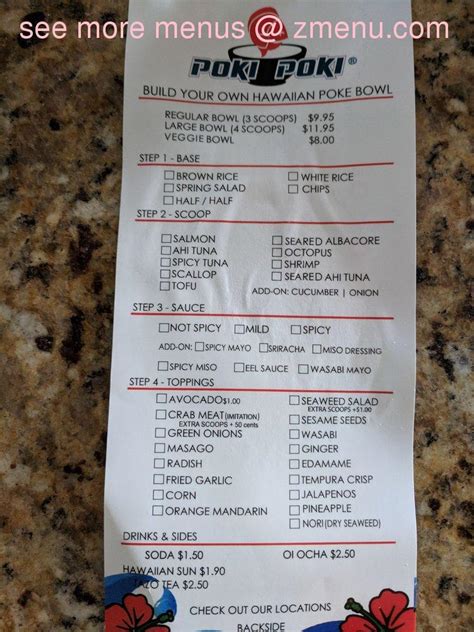 see more menus @ zmenu.com
POKI POKI ®
BUILD YOUR OWN HAWAIIAN POKE BOWL
REGULAR BOWL (3 SCOOPS) $9.95
LARGE BOWL (4 SCOOPS) $11.95
VEGGIE BOWL $8.00
STEP 1 - BASE
BROWN RICE WHITE RICE
SPRING SALAD CHIPS
HALF / HALF
STEP 2 - SCOOP
SALMON SEARED ALBACORE
AHI TUNA OCTOPUS
SPICY TUNA SHRIMP
SCALLOP SEARED AHI TUNA
TOFU ADD-ON: CUCUMBER | ONION
STEP 3 - SAUCE
NOT SPICY MILD SPICY
ADD-ON: SPICY MAYO SRIRACHA MISO DRESSING
SPICY MISO EEL SAUCE WASABI MAYO
STEP 4 - TOPPINGS
AVOCADO $1.00 SEAWEED SALAD
EXTRA SCOOPS +$1.00
CRAB MEAT (IMITATION) SESAME SEEDS
EXTRA SCOOPS + 50 cents
GREEN ONIONS WASABI
MASAGO GINGER
RADISH EDAMAME
FRIED GARLIC TEMPURA CRISP
CORN JALAPENOS
ORANGE MANDARIN PINEAPPLE
NORI (DRY SEAWEED)
DRINKS & SIDES
SODA $1.50 OI OCHA $2.50
HAWAIIAN SUN $1.90
TAZO TEA $2.50
CHECK OUT OUR LOCATIONS
BACKSIDE